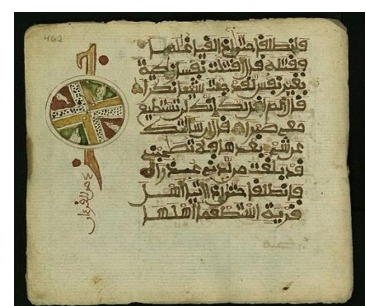 462
فانطلقا حتى اذا لقيا غلما
فقتله قال اقتلت نفسا زكية
بغير نفس لقد جئت شيئا نكرا
قال الم اقل لك انك لن تستطيع
معي صبرا قال ان سالتك
عن شيء بعدها فلا تصحبني
قد بلغت من لدني عذرا
فانطلقا حتى اذا اتيا اهل
قرية استطعما اهلها